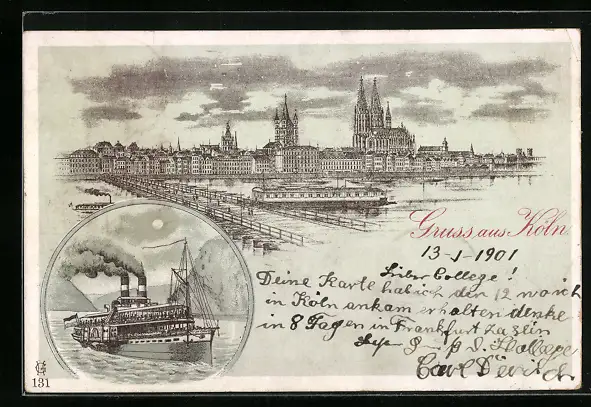 Gruss aus Köln
13-1-1901
Lieber College!
Deine Karte hab ich den 12 wo ich
in Köln ankam erhalten denke
in 8 Tagen in Frankfurt zu sein
D. Kollege
Carl
131